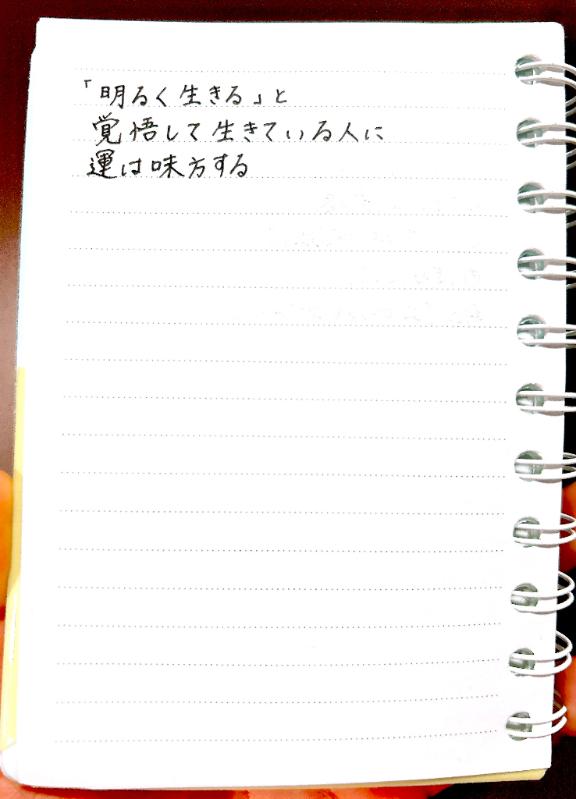 「明るく生きる」と
覚悟して生きている人に
運は味方する